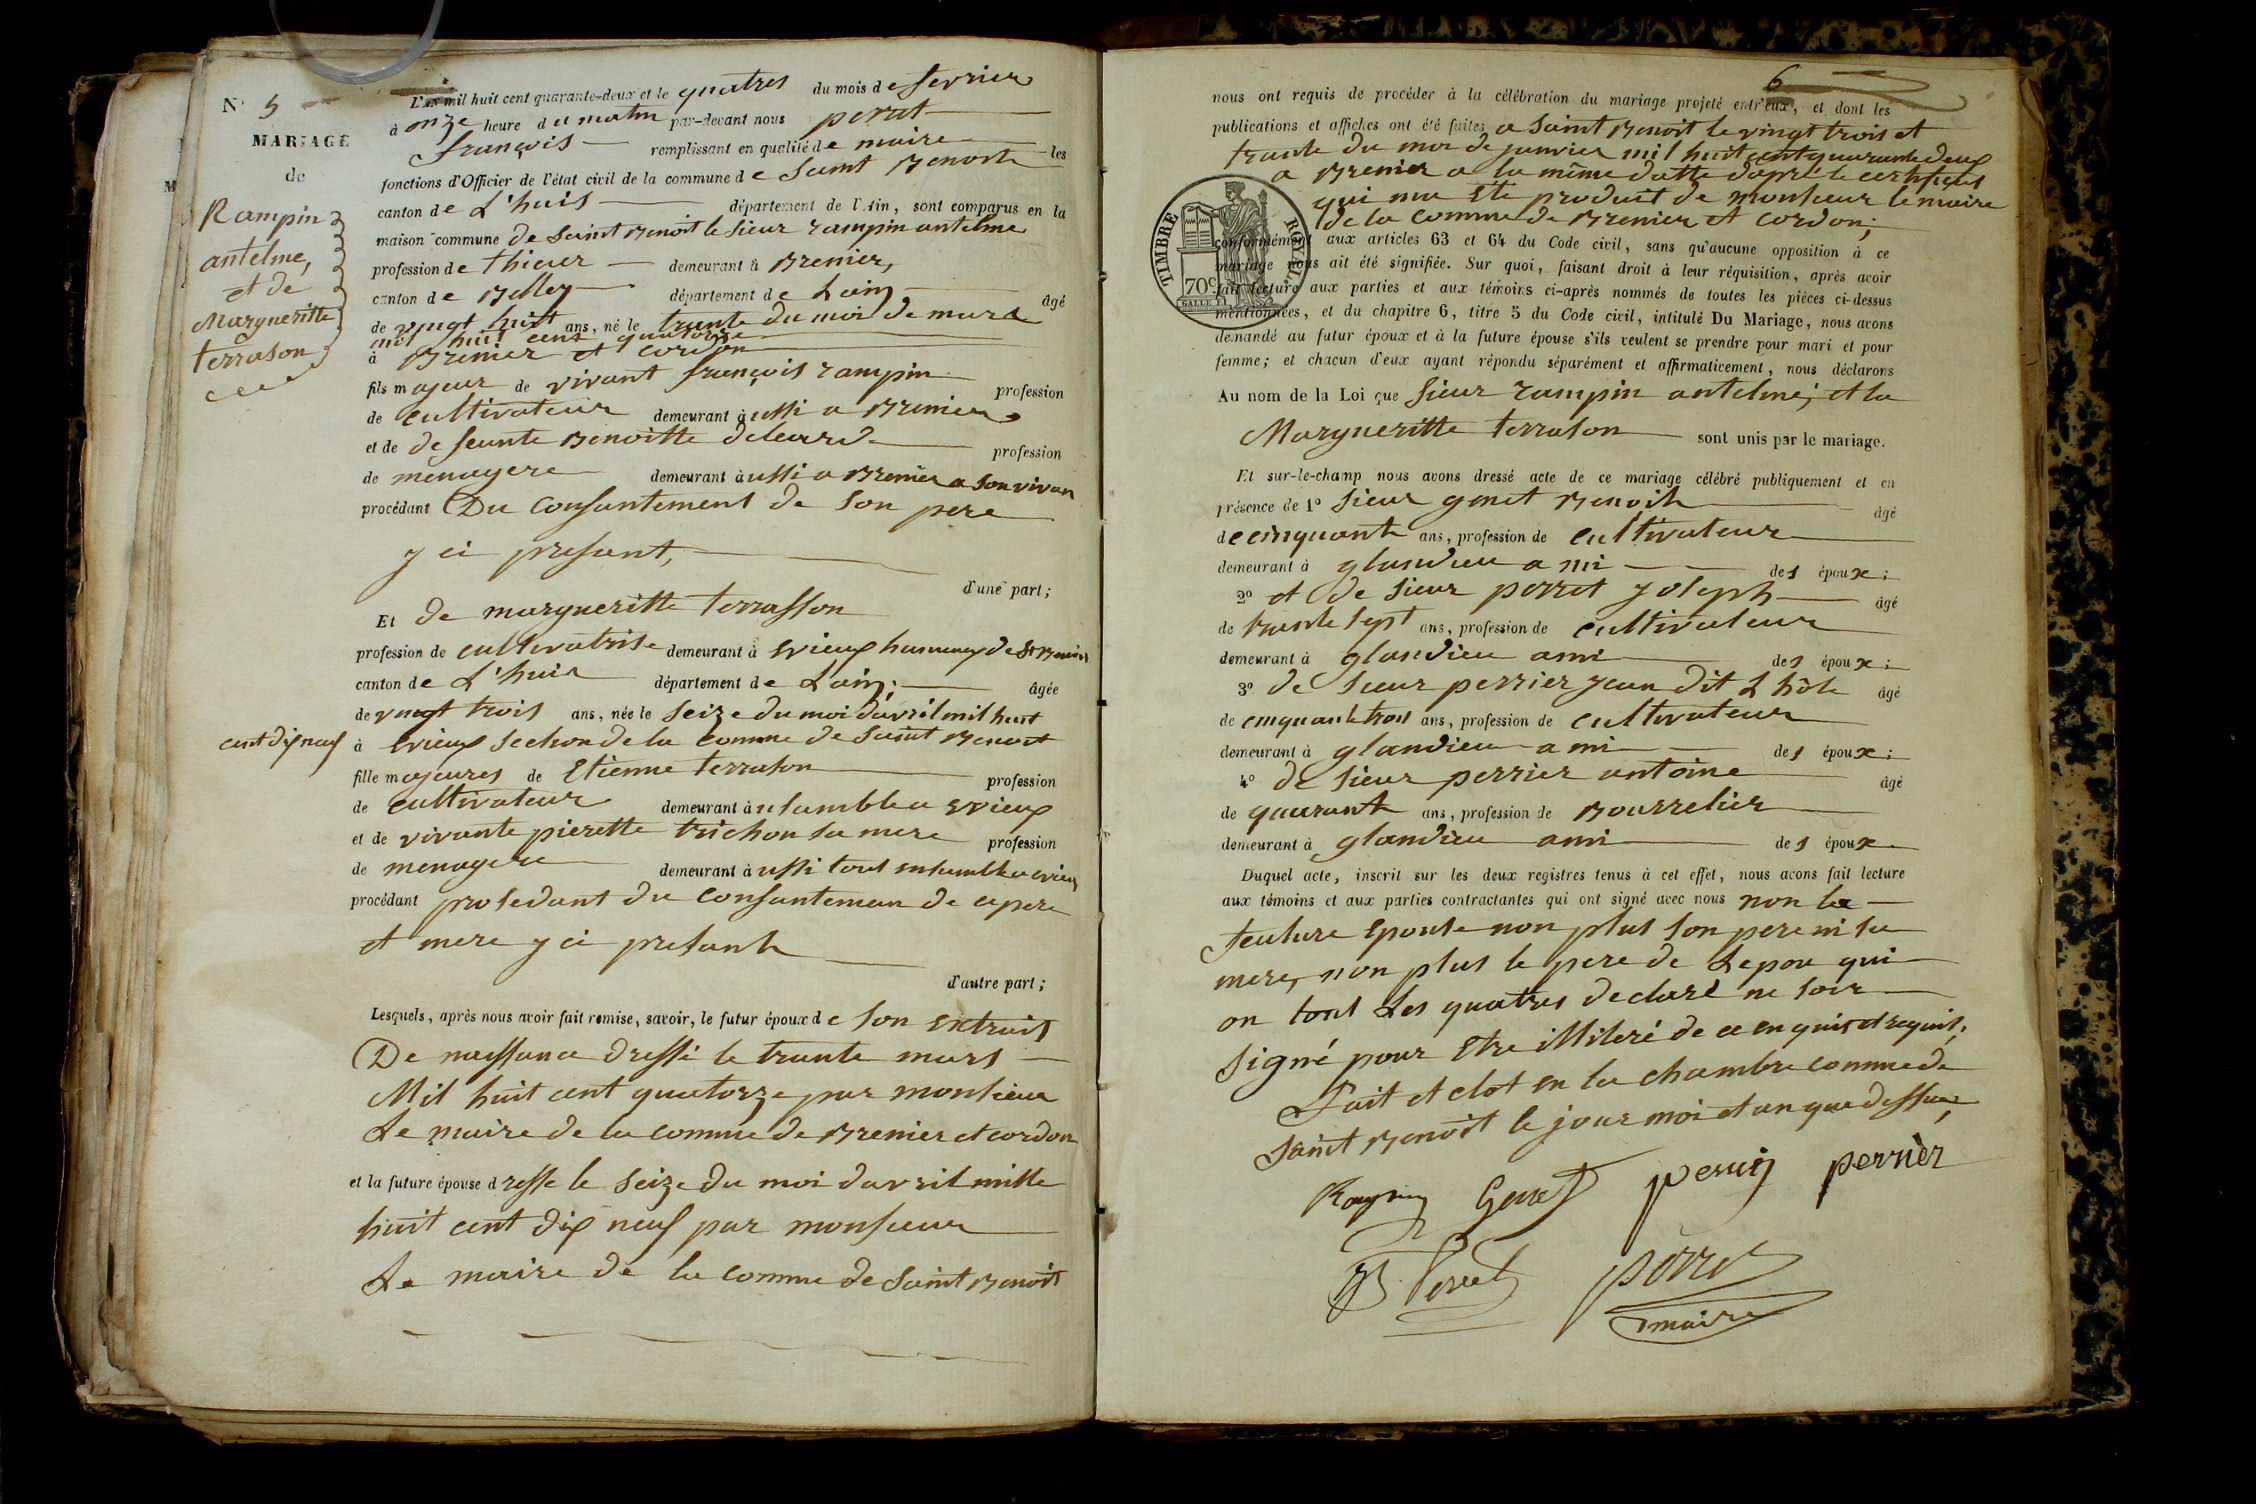 N° 5
MARIAGE
de
Rampin
antelme,
et de
Margueritte
terrason
L'an mil huit cent quarante-deux et le quatres du mois de fevrier
à onze heure du matin par-devant nous perret
françois remplissant en qualité de maire les
fonctions d'Officier de l'état civil de la commune de Saint Benoit
canton de L'huis département de l'Ain, sont comparus en la
maison commune de Saint Benoit le Sieur rampin antelme
profession de demeurant à Brenier,
canton de Belley département de Lain âgé
de vingt huit ans, né le trante du moi de mars
mil huit cent quatorze
à Brenier et cordon
fils majeur de vivant françois rampin profession
de cultivateur demeurant à ussi a Brenier
et de defeunte Benoitte profession
de menagere demeurant à ussi a Brenier a son vivan
procédant Du consantement de son pere
y ci presant,
d'une part;
Et de margueritte terrasson
profession de cultivatrise demeurant à Evieux de St Benoit
canton de L'huis département de Lain; âgée
de vingt trois ans, née le seize du moi davril mil huit
cent dix neuf à Evieux section de la comme de Saint Benoit
fille majeures de Etienne terrason profession
de cultivateur demeurant à Evieux
et de vivante pierette trichon sa mere profession
de menagere demeurant à ussi tout ensamble a Evieux
procédant prosedant du consanteman de pere
et mere y ci presant
d'autre part;
Lesquels, après nous avoir fait remise, savoir, le futur époux de son extrait
De naissance dressé le trante mars
Mil huit cent quatorze par monsieur
Le maire de la comme de Brenier et cordon
et la future épouse dresse le seize du moi davril mille
huit cent dix neuf par monsieur
Le maire de la comme de Saint Benoit
6
nous ont requis de procéder à la célébration du mariage projeté entr'eux, et dont les
publications et affiches ont été faites a Saint Benoit le vingt trois et
trante du moi de janvier mil huit cent quarante deux
a Brenier a la même datte dapré le certificat
qui ma Eté produit de monsieur le maire
de la comme de Brenier et cordon;
TIMBRE ROYAL
70c
conformément aux articles 63 et 64 du Code civil, sans qu'aucune opposition à ce
mariage nous ait été signifiée. Sur quoi, faisant droit à leur réquisition, après avoir
fait lecture aux parties et aux témoins ci-après nommés de toutes les pièces ci-dessus
mentionnées, et du chapitre 6, titre 5 du Code civil, intitulé Du Mariage, nous avons
demandé au futur époux et à la future épouse s'ils veulent se prendre pour mari et pour
femme; et chacun d'eux ayant répondu séparément et affirmativement, nous déclarons
Au nom de la Loi que Sieur rampin antelme; et la
Margueritte terrason sont unis par le mariage.
Et sur-le-champ nous avons dressé acte de ce mariage célébré publiquement et en
présence de 1° Sieur genet Benoit âgé
de cinquante ans, profession de cultivateur
demeurant à glandieu ami des époux;
2° et de Sieur perret joseph âgé
de trante sept ans, profession de cultivateur
demeurant à glandieu ami des époux;
3° de Sieur perrier jean dit L hôte âgé
de cinquante trois ans, profession de cultivateur
demeurant à glandieu ami des époux;
4° de Sieur perrier antoine âgé
de quarant ans, profession de Bourrelier
demeurant à glandieu ami des époux
Duquel acte, inscrit sur les deux registres tenus à cet effet, nous avons fait lecture
aux témoins et aux parties contractantes qui ont signé avec nous non la
feuture Epouse non plus son pere ni sa
mere, non plus le pere de Lepou qui
on tout Les quatres declaré ne
Signé pour Etre illiteré de ce enquis et requis,
Fait et clot en la chambre comme de
Saint Benoit le jour moi et an que dessus,
Rampin Genet perrier
perret
maire